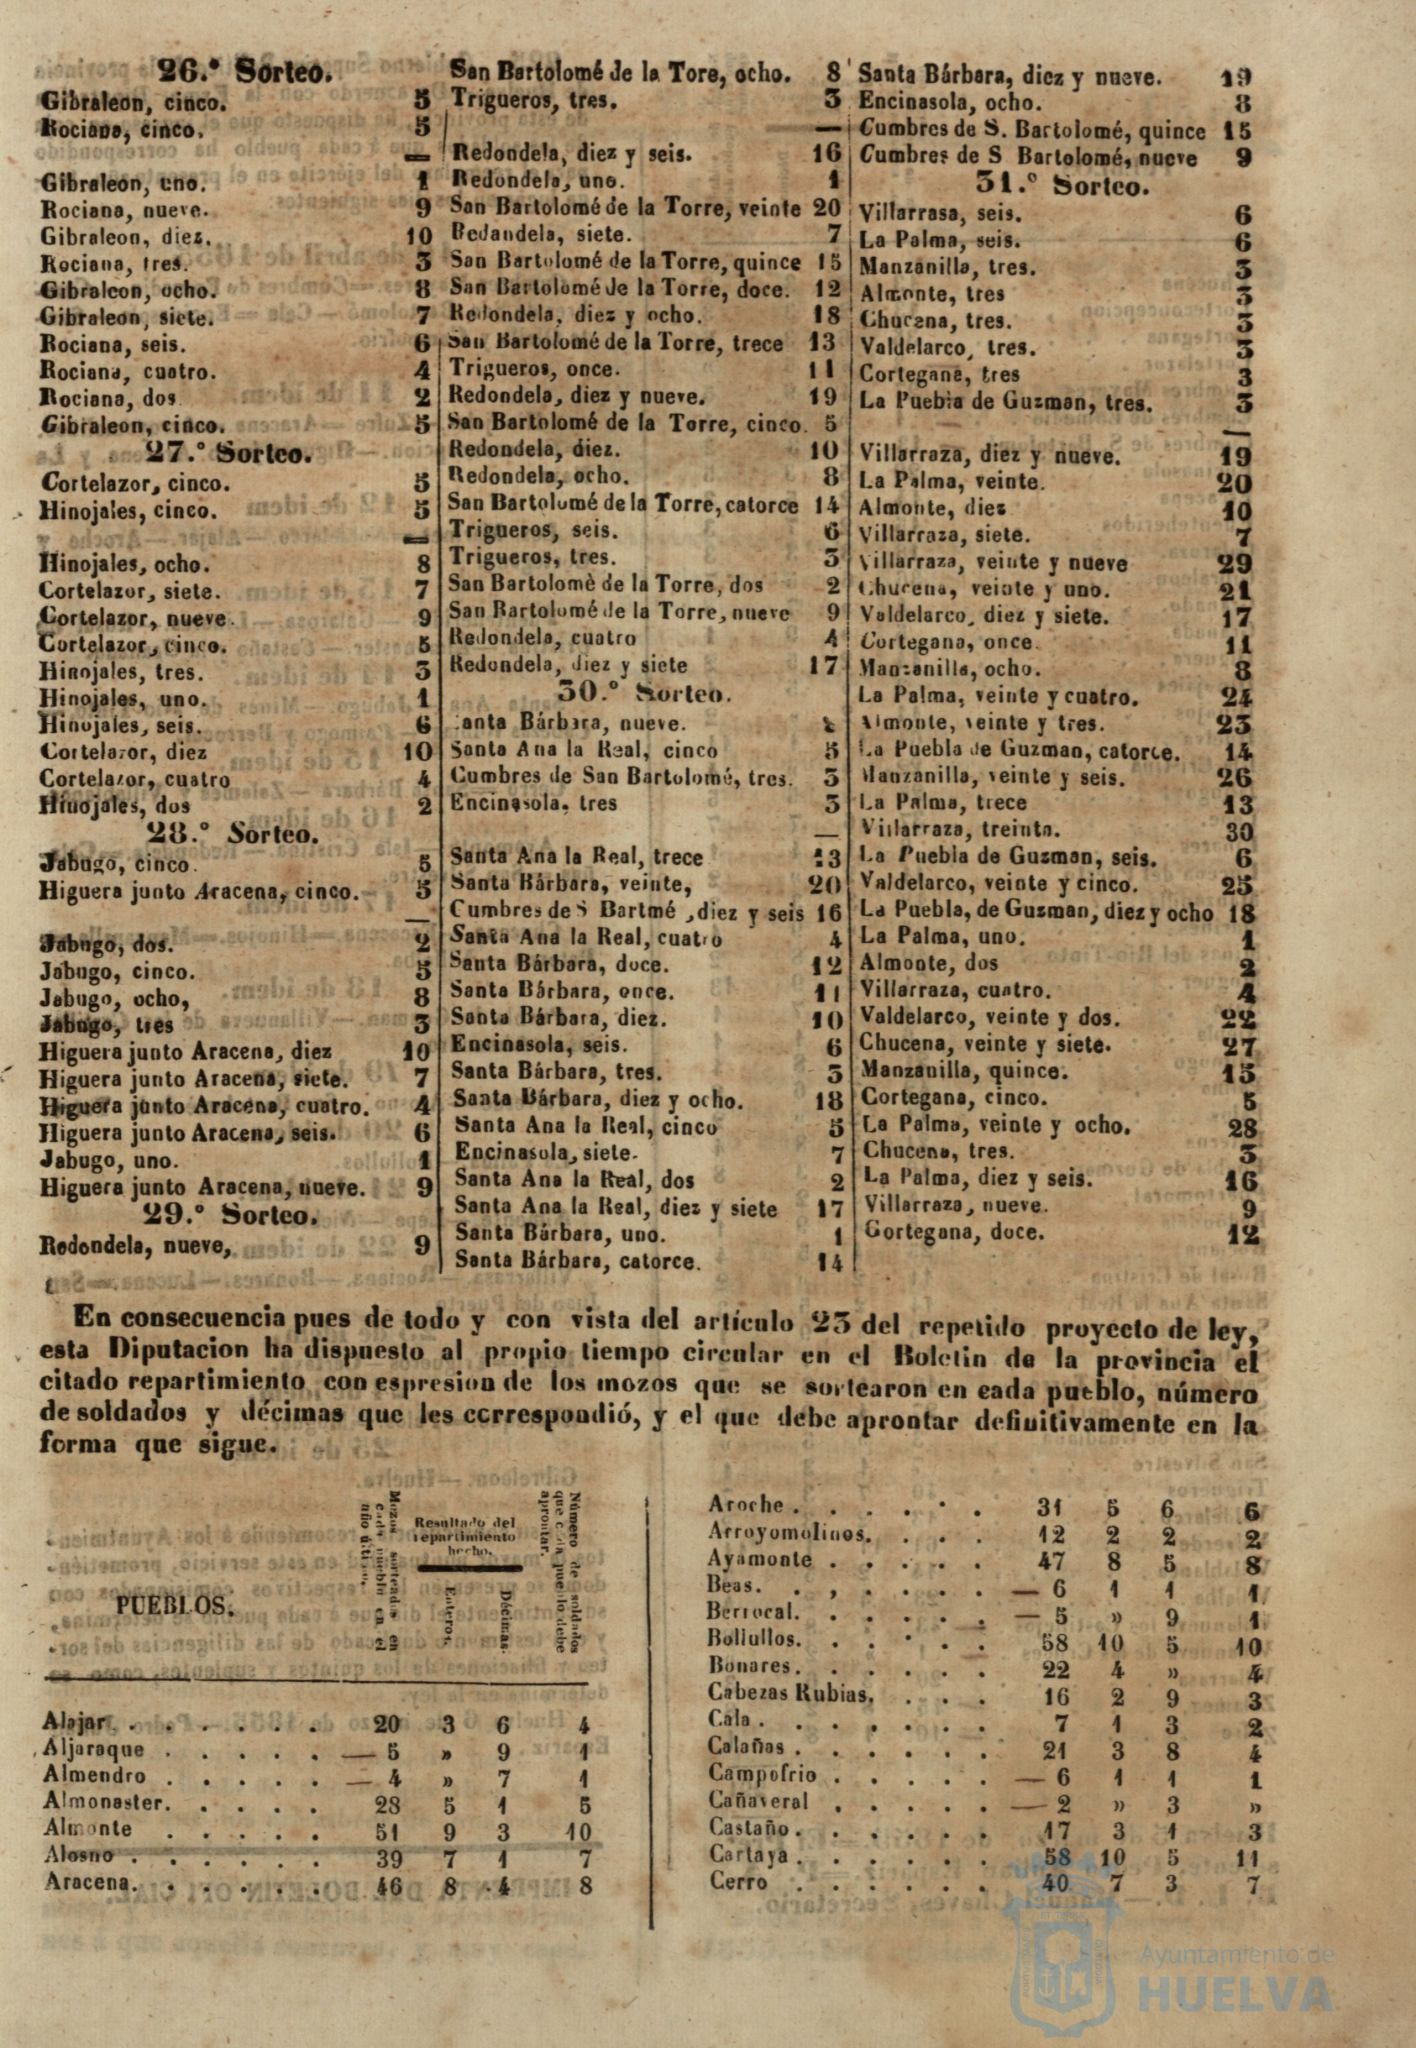 26.º Sorteo.
Gibraleon, cinco. 5
Rociana, cinco. 5
Gibraleon, uno. 1
Rociana, nueve. 9
Gibraleon, diez. 10
Rociana, tres. 3
Gibraleon, ocho. 8
Gibraleon, siete. 7
Rociana, seis. 6
Rociana, cuatro. 4
Rociana, dos 2
Gibraleon, cinco. 5
27.º Sorteo.
Cortelazor, cinco. 5
Hinojales, cinco. 5
Hinojales, ocho. 8
Cortelazor, siete. 7
Cortelazor, nueve. 9
Cortelazor, cinco. 5
Hinojales, tres. 3
Hinojales, uno. 1
Hinojales, seis. 6
Cortelazor, diez 10
Cortelazor, cuatro 4
Hinojales, dos 2
28.º Sorteo.
Jabugo, cinco. 5
Higuera junto Aracena, cinco. 5
Jabugo, dos. 2
Jabugo, cinco. 5
Jabugo, ocho, 8
Jabugo, tres 3
Higuera junto Aracena, diez 10
Higuera junto Aracena, siete. 7
Higuera junto Aracena, cuatro. 4
Higuera junto Aracena, seis. 6
Jabugo, uno. 1
Higuera junto Aracena, nueve. 9
29.º Sorteo.
Redondela, nueve, 9
San Bartolomé de la Tore, ocho. 8
Trigueros, tres. 3
Redondela, diez y seis. 16
Redondela, uno. 1
San Bartolomé de la Torre, veinte 20
Redandela, siete. 7
San Bartolomé de la Torre, quince 15
San Bartolomé de la Torre, doce. 12
Redondela, diez y ocho. 18
San Bartolomé de la Torre, trece 13
Trigueros, once. 11
Redondela, diez y nueve. 19
San Bartolomé de la Torre, cinco. 5
Redondela, diez. 10
Redondela, ocho. 8
San Bartolomé de la Torre, catorce 14
Trigueros, seis. 6
Trigueros, tres. 3
San Bartolomè de la Torre, dos 2
San Bartolomé de la Torre, nueve 9
Redondela, cuatro 4
Redondela, diez y siete 17
30.º Sorteo.
anta Bárbara, nueve.
Santa Ana la Real, cinco 5
Cumbres de San Bartolomé, tres. 3
Encinasola, tres 3
Santa Ana la Real, trece 13
Santa Bárbara, veinte, 20
Cumbres de S Bartmé, diez y seis 16
Santa Ana la Real, cuatro 4
Santa Bárbara, doce. 12
Santa Bárbara, once. 11
Santa Bárbara, diez. 10
Encinasola, seis. 6
Santa Bárbara, tres. 3
Santa Bárbara, diez y ocho. 18
Santa Ana la Real, cinco 5
Encinasola, siete. 7
Santa Ana la Real, dos 2
Santa Ana la Real, diez y siete 17
Santa Bárbara, uno. 1
Santa Bárbara, catorce. 14
Santa Bárbara, diez y nueve. 19
Encinasola, ocho. 8
Cumbres de S. Bartolomé, quince 15
Cumbres de S Bartolomé, nueve 9
31.º Sorteo.
Villarrasa, seis. 6
La Palma, seis. 6
Manzanilla, tres. 3
Almonte, tres 3
Chucena, tres. 3
Valdelarco, tres. 3
Cortegana, tres 3
La Puebla de Guzman, tres. 3
Villarraza, diez y nueve. 19
La Palma, veinte. 20
Almonte, diez 10
Villarraza, siete. 7
Villarraza, veinte y nueve 29
Chucena, veinte y uno. 21
Valdelarco, diez y siete. 17
Cortegana, once. 11
Manzanilla, ocho. 8
La Palma, veinte y cuatro. 24
Almonte, veinte y tres. 23
La Puebla de Guzman, catorce. 14
Manzanilla, veinte y seis. 26
La Palma, trece 13
Villarraza, treinta. 30
La Puebla de Guzman, seis. 6
Valdelarco, veinte y cinco. 25
La Puebla, de Guzman, diez y ocho 18
La Palma, uno. 1
Almonte, dos 2
Villarraza, cuatro. 4
Valdelarco, veinte y dos. 22
Chucena, veinte y siete. 27
Manzanilla, quince. 15
Cortegana, cinco. 5
La Palma, veinte y ocho. 28
Chucena, tres. 3
La Palma, diez y seis. 16
Villarraza, nueve. 9
Cortegana, doce. 12
En consecuencia pues de todo y con vista del artículo 23 del repetido proyecto de ley,
esta Diputacion ha dispuesto al propio tiempo circular en el Boletin de la provincia el
citado repartimiento con espresion de los mozos que se sortearon en cada pueblo, número
de soldados y décimas que les correspondió, y el que debe aprontar definitivamente en la
forma que sigue.
PUEBLOS.
Mozos sorteados en
cada pueblo en el
año último.
Resultado del
repartimiento
hecho.
Enteros.
Décimas.
Número de soldados
que cada pueblo debe
aprontar.
Alajar. . . . . . . 20 3 6 4
Aljaraque . . . . . — 5 » 9 1
Almendro . . . . . — 4 » 7 1
Almonaster. . . . . 28 5 1 5
Almonte . . . . . 51 9 3 10
Alosno . . . . . . 39 7 1 7
Aracena. . . . . . 46 8 4 8
Aroche . . . . . . 31 5 6 6
Arroyomolinos. . . . 12 2 2 2
Ayamonte . . . . . 47 8 5 8
Beas. . . . . . . — 6 1 1 1
Berrocal. . . . . . — 5 » 9 1
Bollullos. . . . . . 58 10 5 10
Bonares. . . . . . 22 4 » 4
Cabezas Rubias. . . . 16 2 9 3
Cala . . . . . . . 7 1 3 2
Calañas . . . . . . 21 3 8 4
Campofrio . . . . . — 6 1 1 1
Cañaveral . . . . . — 2 » 3 »
Castaño . . . . . . 17 3 1 3
Cartaya . . . . . . 58 10 5 11
Cerro . . . . . . 40 7 3 7
Ayuntamiento de
HUELVA